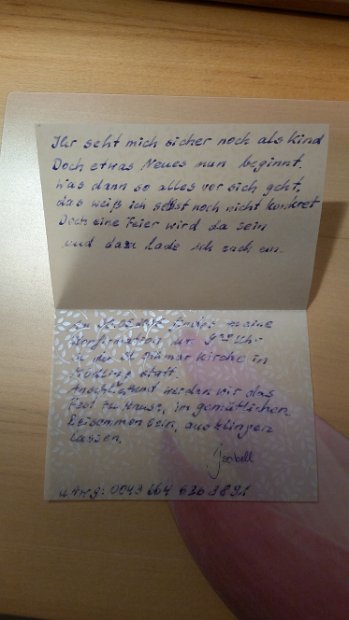 Ihr seht mich sicher noch als Kind
Doch etwas Neues nun beginnt.
Was dann so alles vor sich geht,
das weiß ich selbst noch nicht konkret
Doch eine Feier wird da sein
und dazu lade ich euch ein.
findet meine
Konfirmation um
in der St. Othmar Kirche in
Mödling statt.
Anschließend werden wir das
Fest zu Hause, im gemütlichen
Beisammensein, ausklingen
lassen.
Isabell
u.A.w.g.: 0043 664